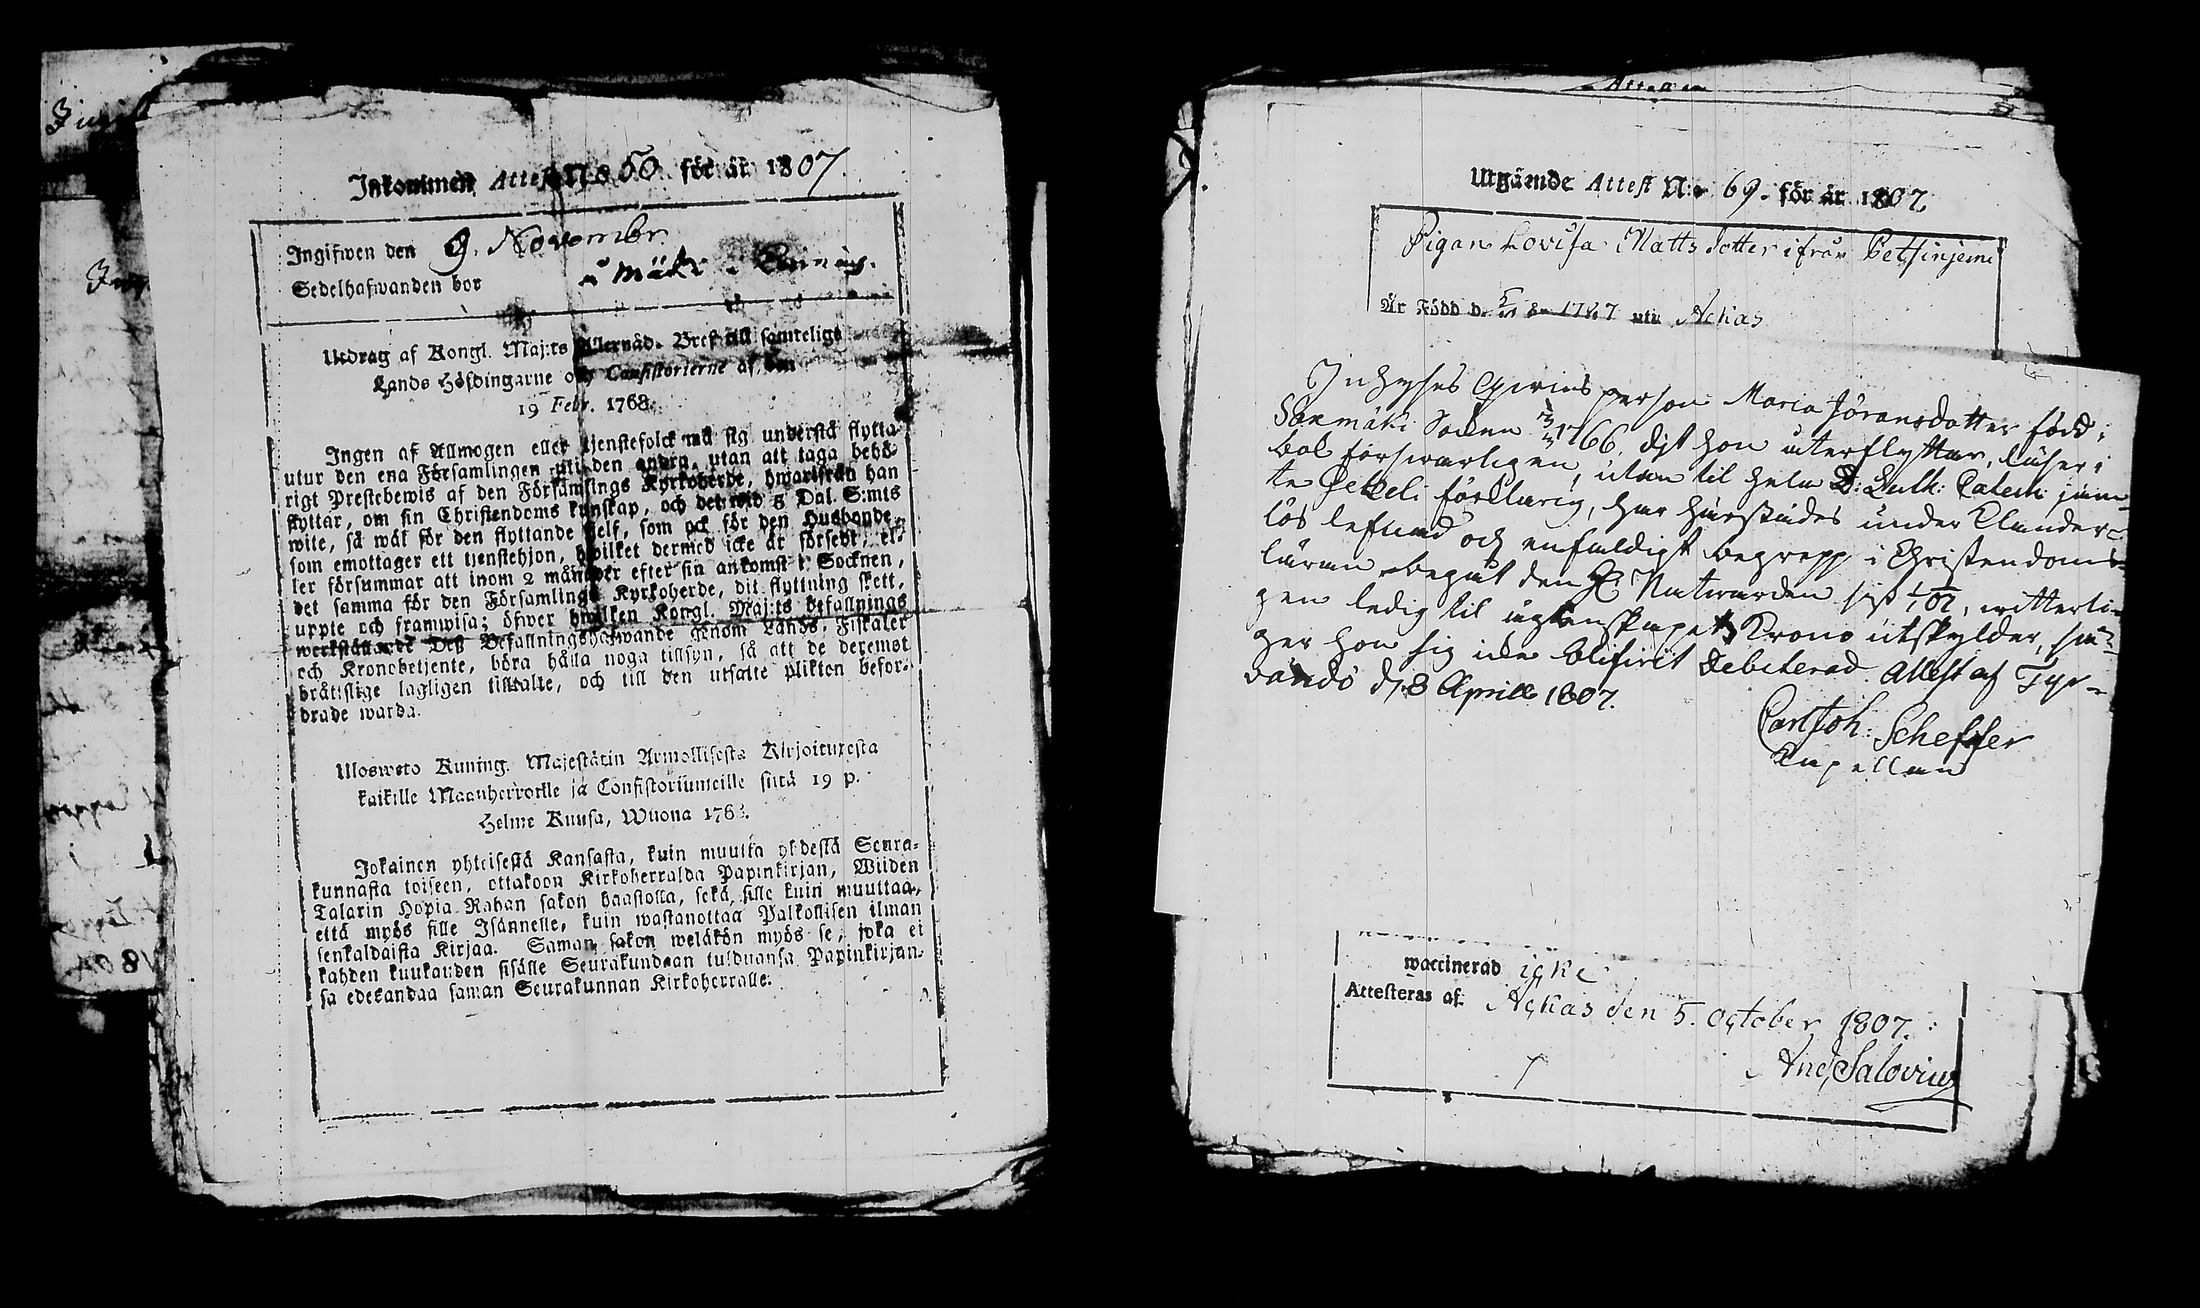 Inkommen Attest No 50 för år 1807.
Ingifwen den 9. Novembr.
Sedelhafwanden bor å Mäki
Utdrag af Kongl. Maj:ts Allernåd. Bref till samtelige
Lands Höfdingarne och Consistorierne af den
19 Febr. 1768.
Ingen af Allmogen eller tjenstefolck må sig understå flytta
utur den ena Församlingen uti den andra, utan att taga behö-
rigt Prestebewis af den Församlings Kyrkoherde, hwarifrån han
flyttar, om sin Christendoms kunskap, och det wid 5 Dal. S:mts
wite, så wäl för den flyttande sjelf, som ock för den Husbonde,
som emottager ett tjenstehjon, hwilket dermed icke är försedt, el-
ler försummar att inom 2 månader efter sin ankomst i Socknen,
det samma för den Församlings Kyrkoherde, dit flyttning skett,
uppte och framwisa; öfwer hwilken Kongl. Maj:ts befallnings
werkställande Deß Befallningshafwande genom Lands, Fiskaler
och Kronobetjente, böra hålla noga tillsyn, så att de deremot
bråttslige lagligen tilltalte, och till den utsatte plikten beford-
drade warda.
Uloswеto Kuning. Majestätin Armollisesta Kirjoituxesta
kaikille Maanherroille ja Consistoriumeille siitä 19 p.
Helme Kuusa, Wuona 1768.
Jokainen yhteisestä Kansasta, kuin muutta yhdestä Seura-
kunnasta toiseen, ottakoon Kirkoherralda Papinkirjan, Wiiden
Talarin Hopia Rahan sakon haastolla, sekä sille kuin muuttaa,
että myös sille Isännelle, kuin wastanottaa Palkollisen ilman
senkaldaista Kirjaa. Saman sakon weläkön myös se, joka ei
kahden kuukauden sisälle Seurakundaan tulduansa Papinkirjan-
sa edesandaa saman Seurakunnan Kirkoherralle.
Attesten
Utgående Attest N:o 69. för år 1807
Pigan Lovisa Mattsdotter ifrån
Är Född d. uti Ackas
Inhyses person Maria Jöransdotter född i
Socken 1766, dit hon återflyttar, läser i
bok försvarligen, utan til hela D: Luth: Catech: jäm-
te förklaring, har härstädes under klander-
lös lefnad och enfaldigt begrepp i Christendoms-
läran begåt den H. Nattvarden sist, witterli-
gen ledig til ägtenskapet, Krono utskylder, sä-
ger hon sig icke blifvit Debiterad. Attest af Tyr-
vändö d. 8 Aprill 1807.
Carl Joh: Scheffer
Kapellan
waccinerad icke
Attesteras af Ackas den 5. october 1807.
And. Salovius